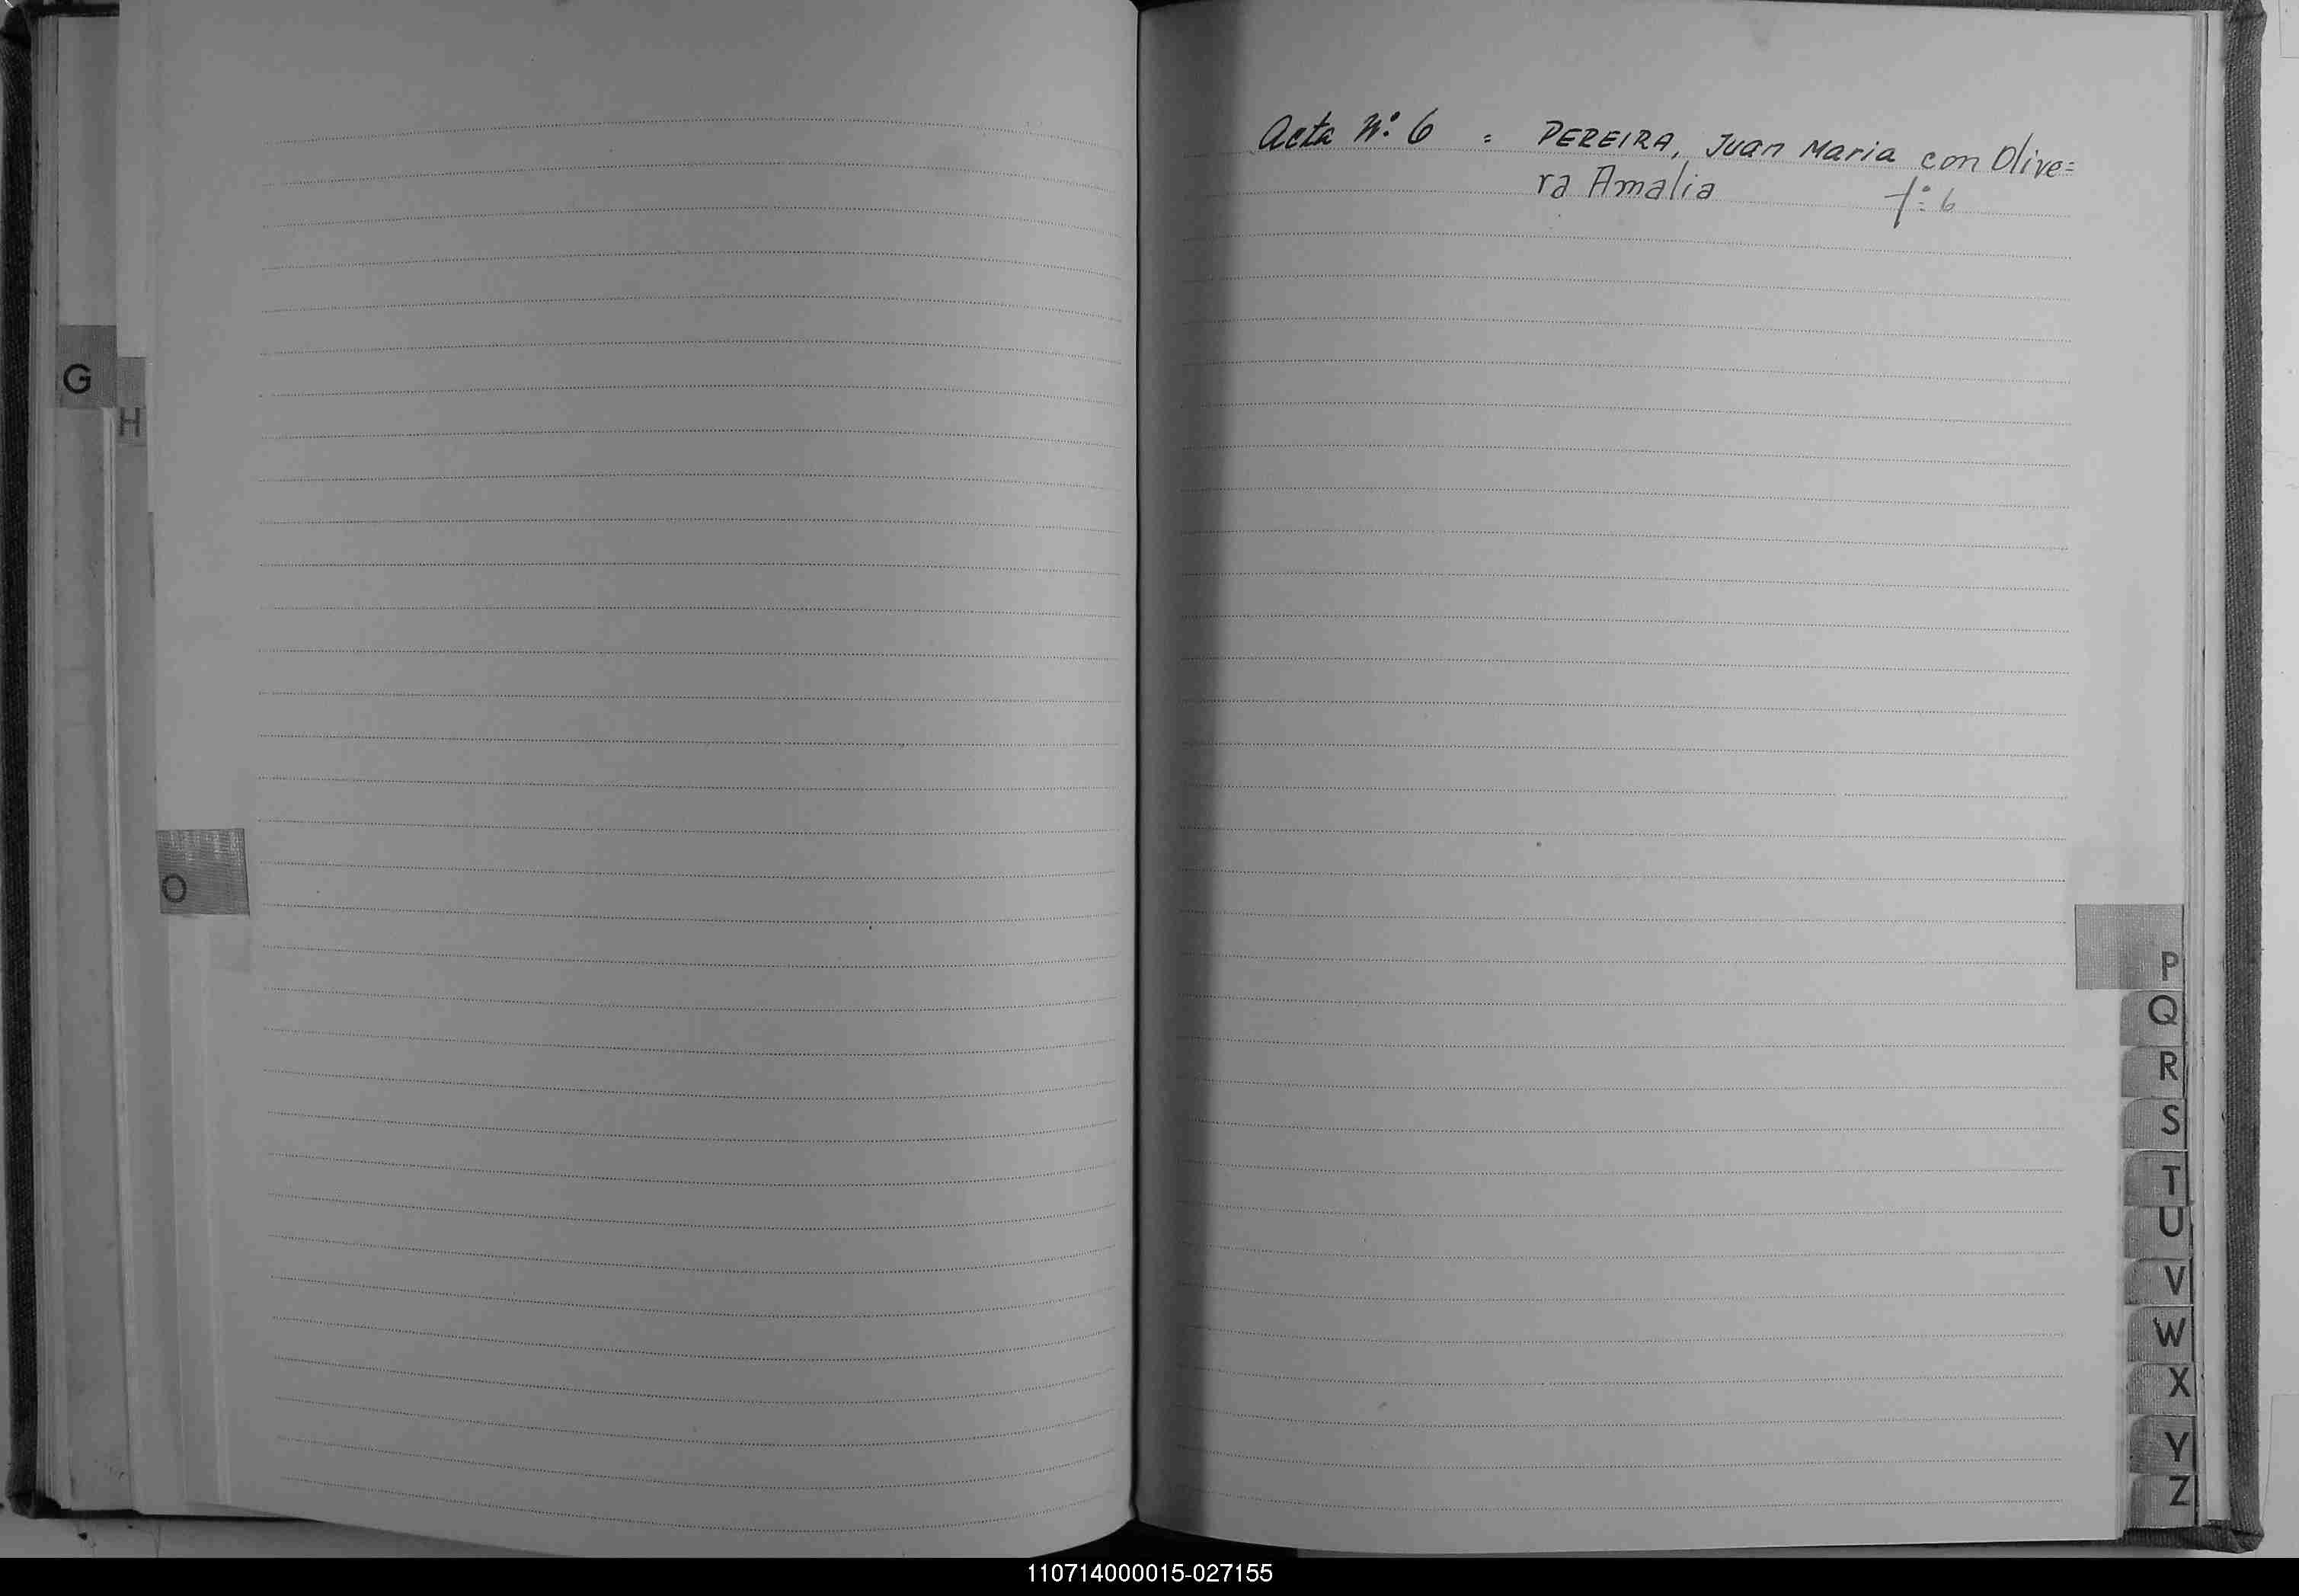 Acta Nº 6 = PEREIRA, Juan Maria con Olive=
ra Amalia fº 6
G
H
O
P
Q
R
S
T
U
V
W
X
Y
Z
110714000015-027155